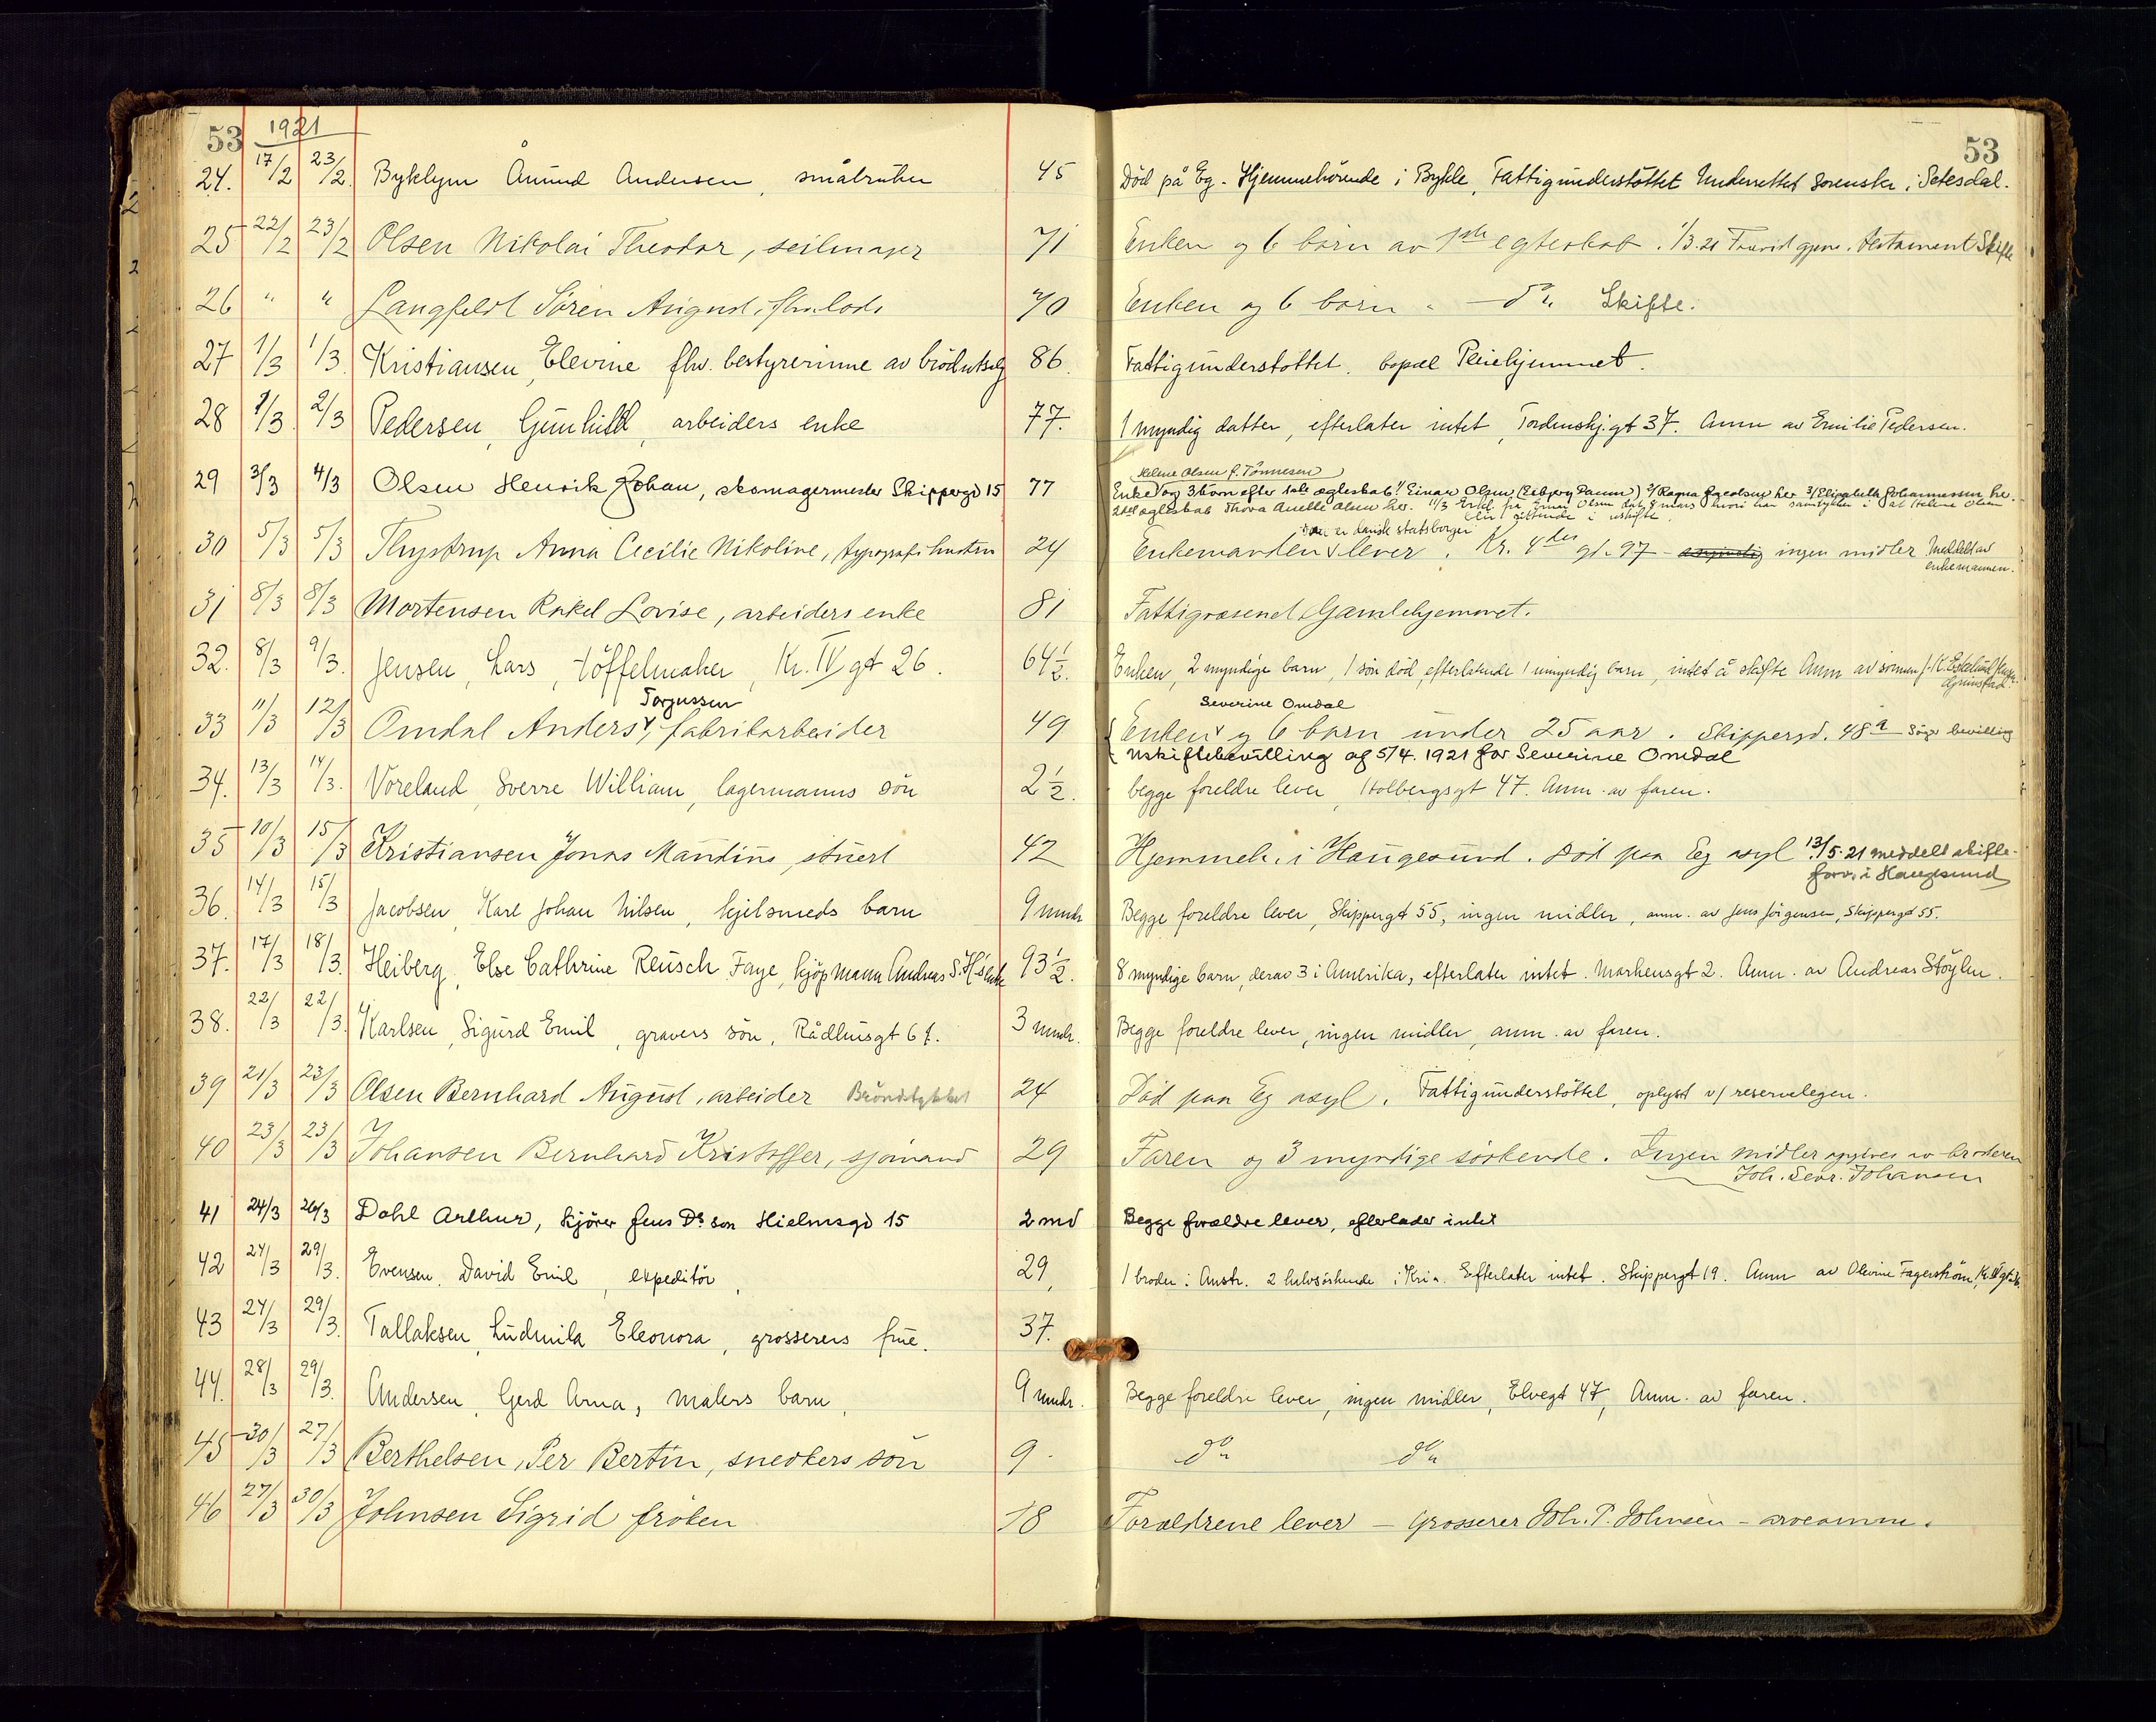 53 1921 53
24. 17/2 23/2. Byklum Åmund Andersen, småbruker 45 Død på Eg. Hjemmehörende i Bykle, Fattigunderstöttet Underrettet Sorenskr. i Setesdal.
25 22/2 23/2 Olsen Nikolai Theodor, seilmager 71 Enken og 6 børn av 1ste egteskab. 1/3.21 testament Skifte
26 " " Langfeldt Sören August, 70 Enken og 6 børn " — do " Skifte.
27 1/3 1/3. Kristiansen, Elevine fhv. bestyrerinne av brödutsalg 86. Fattigunderstöttet, bopæl Pleiehjemmet.
28 1/3. 2/3 Pedersen, Gunhild, arbeiders enke 77. 1 myndig datter, efterlater intet, Tordenskj.gt 37. Anm av Emilie Pedersen.
Helene Olsen f. Tönnesen
29 3/3 4/3 Olsen Henrik Johan, skomagermester Skippergd 15 77 Enke og 3 börn efter 1ste ægteskab: 1/ Einar Olsen, (Esbjerg Danm) 2/ Ragna Jacobsen her 3/ Elisabeth Johannessen her.
2det ægteskab Thora Anette Olsen her. 11/3 Erkl. fra Einar Olsen dat. 8 mars hvori han samtykker i at Helene Olsen
blir sittende i uskifte.
der er dansk statsborger
30 5/3 5/3 Thystrup Anna Cecilie Nikoline, typografs hustru 24 Enkemanden lever. Kr. 4des gt. 97 - ingen midler Meddelt av
enkemannen.
31 8/3 8/3 Mortensen Rakel Lovise, arbeiders enke 81 Fattigvæsenet Gamlehjemmet.
32. 8/3 9/3. Jensen, Lars, töffelmaker, Kr. IV gt 26. 64 1/2. Enken, 2 myndige barn, 1 sön död, efterlatende 1 umyndig barn, intet å skifte Anm av sönnen
Grimstad
Torgussen Severine Omdal
33 11/3 12/3 Omdal Anders, fabrikarbeider 49 Enken og 6 barn under 25 aar. Skippergd. 48a Söger bevilling
Uskiftebevilling af 5/4. 1921 for Severine Omdal
34. 13/3 14/3. Voreland, Sverre William, lagermanns sön 2 1/2. begge foreldre lever, Holbergsgt 47. Anm. av faren.
35 10/3 15/3 Kristiansen Jonas Mandius, stuert 42 Hjemmeh. i Haugesund. Död paa Eg asyl 13/5.21 meddelt skifte-
forv. i Haugesund
36. 14/3 15/3 Jacobsen, Karl Johan Nilsen, kjelsmeds barn 9 mndr Begge foreldre lever, Skippergt 55, ingen midler, anm. av Jens Jörgensen, Skippergt 55.
37. 17/3 18/3. Heiberg, Else Cathrine Reusch Faye, kjöpmann Andreas S. H's enke 93 1/2. 8 myndige barn, derav 3 i Amerika, efterlater intet. Markensgt 2. Anm. av Andreas Stöylen.
38. 22/3 22/3. Karlsen, Sigurd Emil, gravers sön, Rådhusgt 67. 3 mndr. Begge foreldre lever, ingen midler, anm. av faren.
39 21/3 23/3 Olsen Bernhard August, arbeider Bröndstykket 24 Död paa Eg asyl. Fattigunderstöttet, oplyst v/ reservelegen.
40 23/3 23/3 Johansen Bernhard Kristoffer, sjömand 29 Faren og 3 myndige söskende. Ingen midler oplyses av broderen
Joh. Sevr. Johansen
41 24/3 26/3 Dahl Arthur, kjörer Jens Ds son Hielmsgd 15 2 md Begge forældre lever, efterlader intet
42 24/3 29/3. Evensen, David Emil, expeditör, 29, 1 broder i Austr. 2 halvsöskende i Kr.a. Efterlater intet. Skippergt 19. Anm av Olevine Fagerström,
43 24/3 29/3. Tallaksen, Ludmila Eleonora, grosserers frue. 37.
44. 28/3 29/3. Andersen, Gerd Arna, malers barn, 9 mndr. Begge foreldre lever, ingen midler, Elvegt 47, Anm. av faren.
45 30/3 27/3 Berthelsen, Per Bertin, snedkers sön 9 - do do
46 27/3 30/3 Johnsen Sigrid fröken 18 Forældrene lever - Grosserer Joh. P. Johnsen - arveanm.